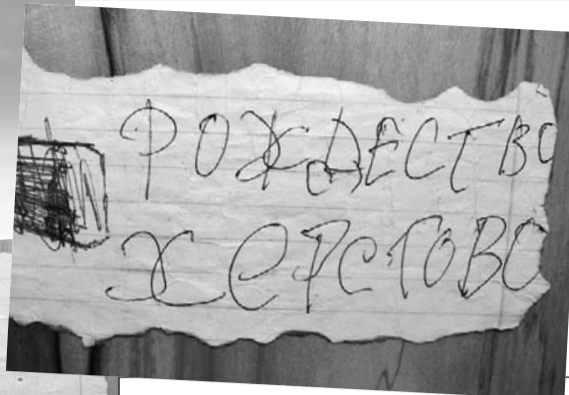 РОЖДЕСТВО
ХЕРСТОВО